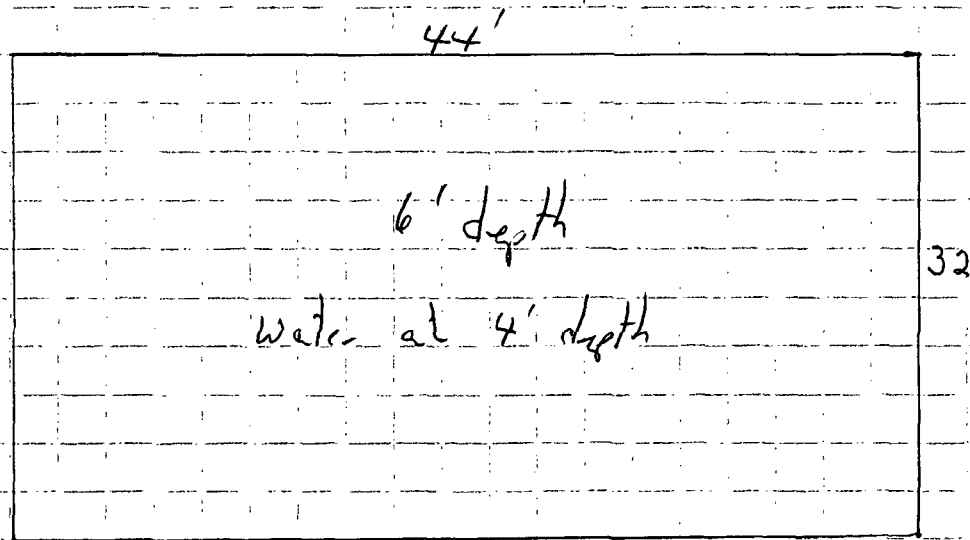 44'
6' depth
32
Water at 4' depth